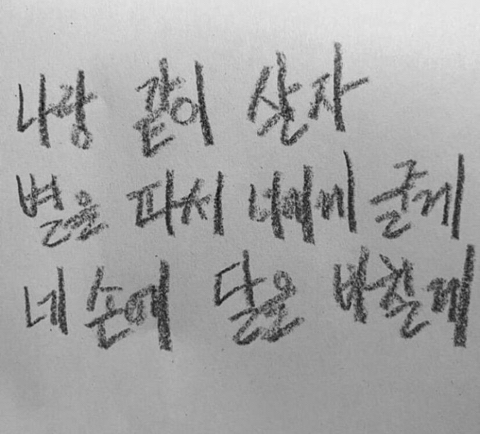 나랑 같이 살자
별을 파서 너에게 줄게
네 손에 달을 바칠게